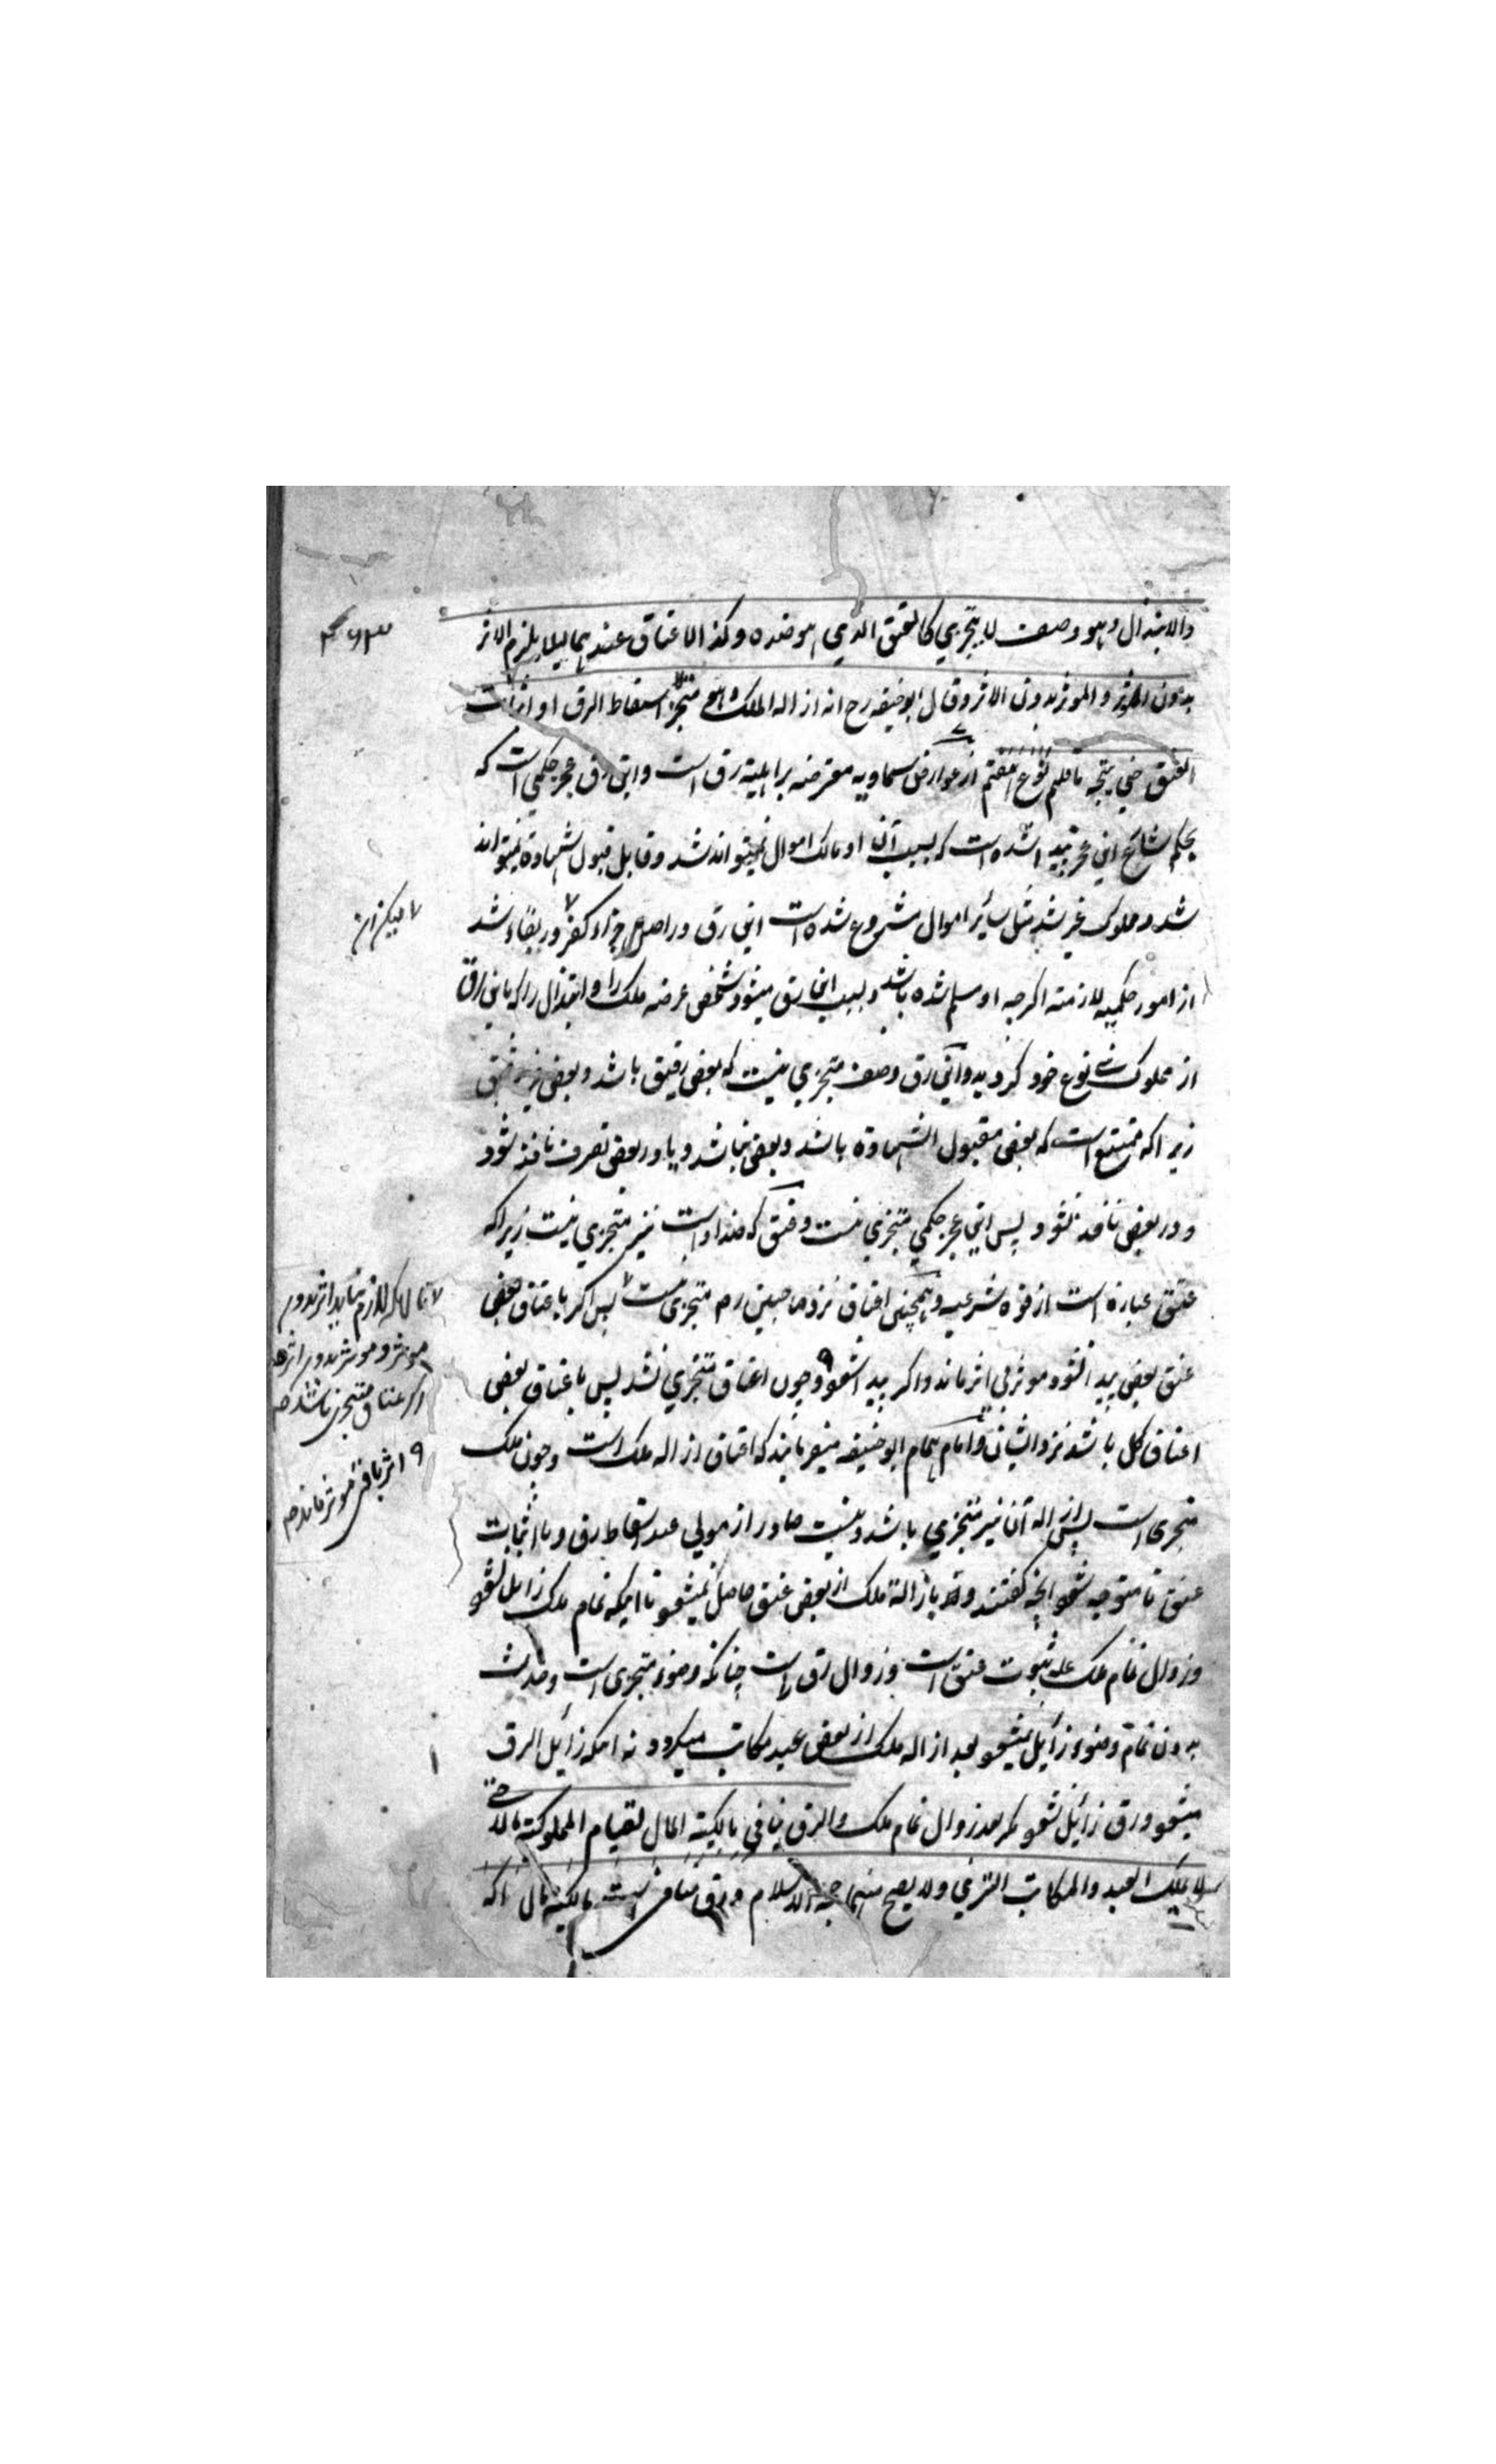 والابتذال وهو وصف لا يتجزي كالعتق الذي هو ضده وكذا الاعتاق عندهما ليلا يلزم الاثر
بدون المؤثر والموثر بدون الاثر وقال ابو حنيفه رح انه ازاله الملك وهو متجز لا اسقاط الرق او اثبات
العتق حتي يتجه ما قلتم نوع هفتم از عوارض سماويه معترضه بر اهليته رق است واين رق عجز حكمي است كه
بحكم شارع اين عجز پيدا شده است كه بسبب آن او مالك اموال نميتواند شد وقابل قبول الشهادة نميتواند
شد ومملوك غير شد مثل سائر اموال مشروع شده است اين رق در اصل جزاء كفر و در بقاء شد
از امور حكميه لازمته اكرچه او مسلم شده باشد و بسبب اين رق ميشود شخص عرضه ملك را و ابتذال را كه باين رق
از مملوك بني نوع خود كرديد واين رق وصف متجزي نيست كه بعض رقيق باشد وبعض غير رقيق
زيراكه ممتنع است كه بعض مقبول الشهادة باشد وبعض نباشد و يا در بعض تصرف نافذ شود
و در بعض نافذ نشود پس اين عجز حكمي متجزي نيست وعتق كه ضد او است نيز متجزي نيست زيراكه
عتق عبارة است از قوه شرعيه وهمچنين اعتاق نزد صاحبين رح متجزي نيست پس اكر باعتاق بعض
عتق بعض پيدا نشود موثر بي اثر ماند و اكر پيدا شود وچون اعتاق متجزي نشد پس باعتاق بعض
اعتاق كل باشد نزد ايشان وامام همام ابو حنيفه ميفرمايند كه اعتاق ازاله ملك است وچون ملك
متجزي است پس ازاله آن نيز متجزي باشد ونيست صادر از مولي عبد اسقاط رق ويا اثبات
عتق تا متوجه شود انچه كفتند و بازالة ملك از بعض عتق حاصل نميشود تا اينكه تمام ملك زائل نشود
وزوال تمام ملك علة ثبوت عتق است وزوال رق است چنانكه وضوء متجزي است وحدث
بدون تمام وضوء زائل نميشود بعد ازاله ملك از بعض عبد مكاتب ميكردد نه اينكه زائل الرق
ميشود ورق زائل نشود مكر بعد زوال تمام ملك والرق ينافي مالكية المال لقيام المملوكية مالا حتي
لا يملك العبد والمكاتب التسري ولا يصح منهما حجة الاسلام ورق منافي است مالكيته مال را كه
تا لازم نيايد اثر بدون
موثر و موثر بدون اثر
اكر عتاق متجزي باشد
۹ اثر باقي موثر ماند